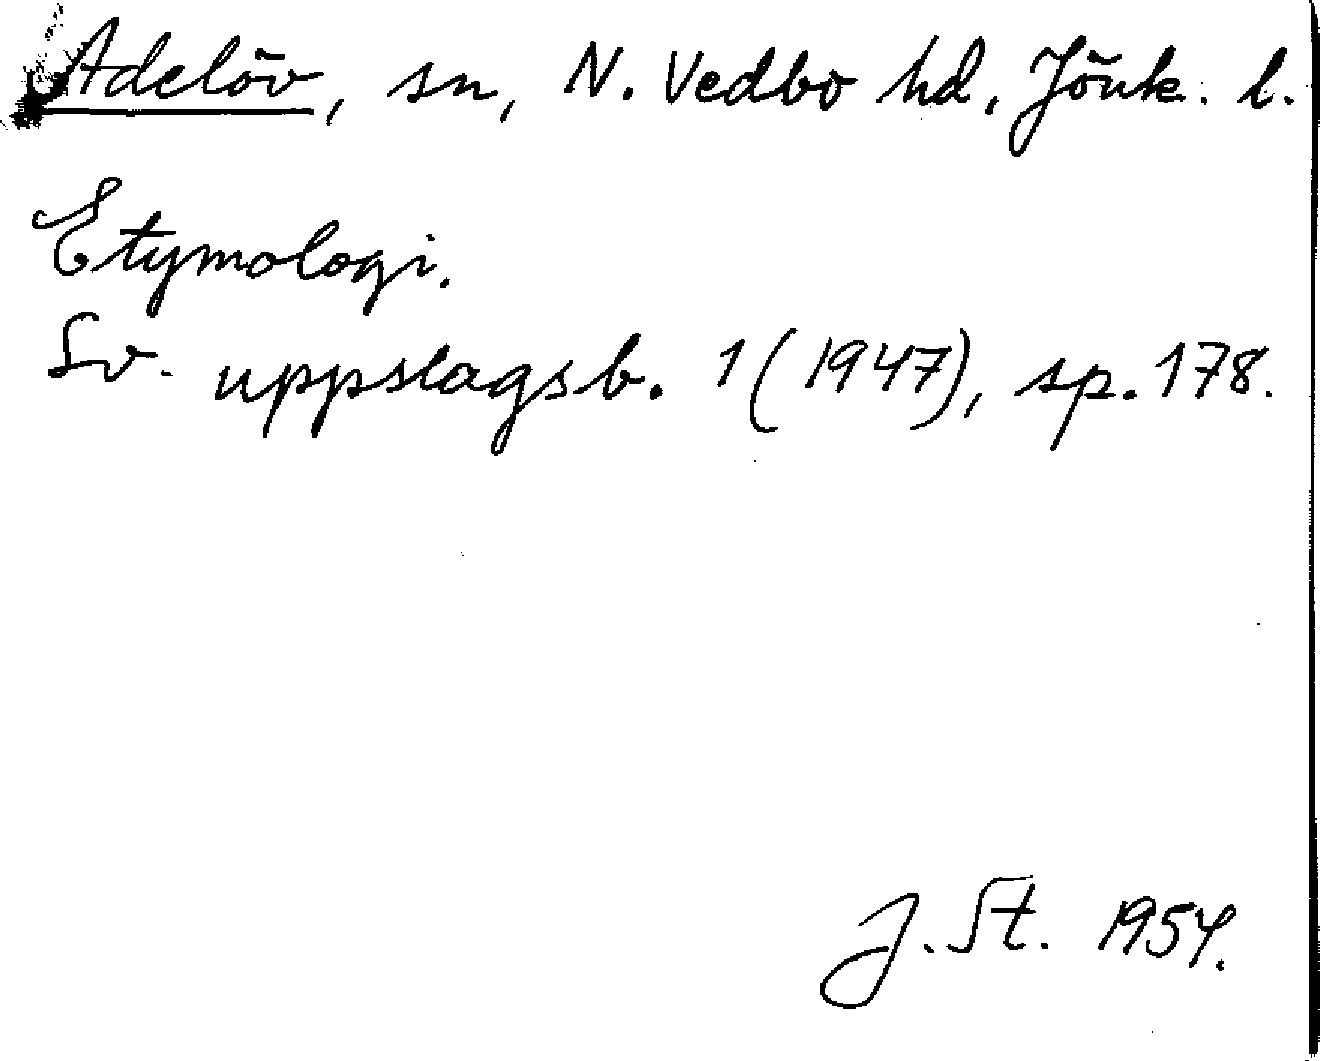 Adelöv, sn, N. Vedbo hd, Jönk. l.
Etymologi.
Sv. uppslagsb. 1 (1947), sp. 178.
J. St. 1954.